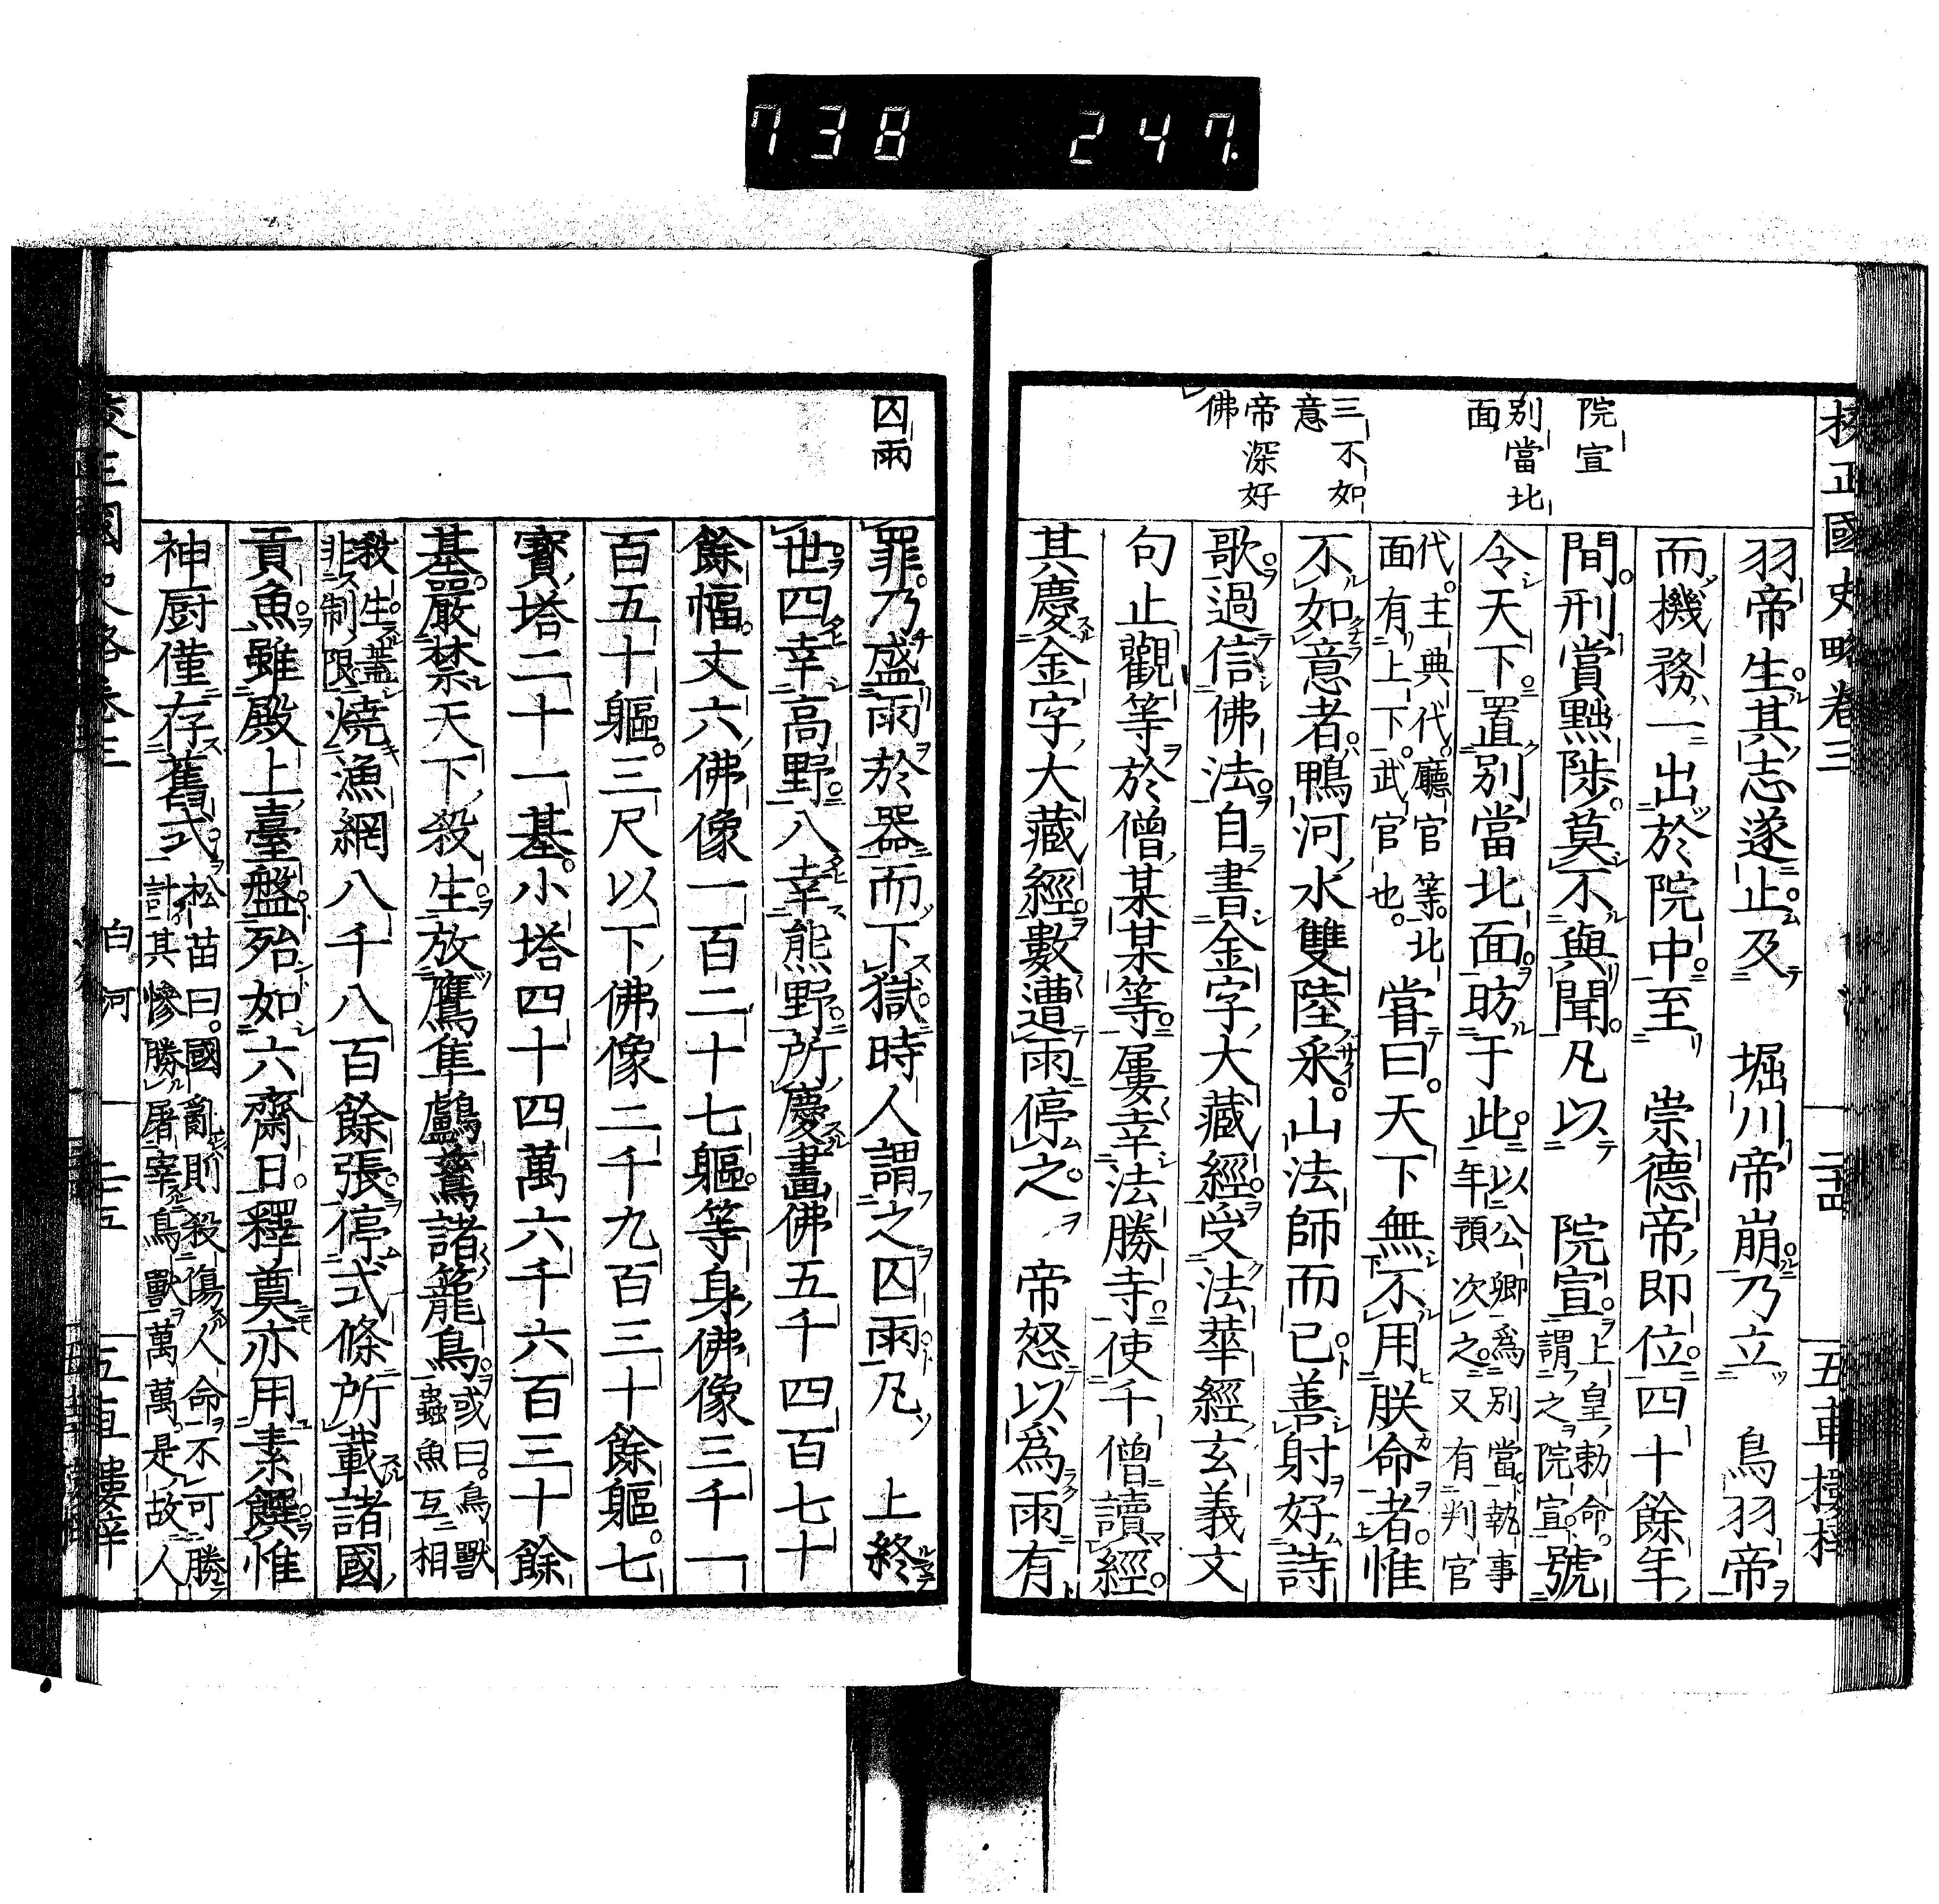 738 247.
校正國史略卷三 二十四 五車樓梓
院宣
別當北
面
三不如
意
帝深好
佛
羽帝生其志遂止及 堀川帝崩乃立 鳥羽帝
而機務一出於院中至 崇德帝即位四十餘年
間刑賞黜陟莫不與聞凡以 院宣上皇勅命謂之院宣號
令天下置別當北面昉于此以公卿爲別當執事年預次之又有判官
代主典代廳官等北面有上下武官也 嘗曰天下無不用朕命者惟
不如意者鴨河水雙陸采山法師而已善射好詩
歌過信佛法自書金字大藏經受法華經玄義文
句止觀等於僧某某等屢幸法勝寺使千僧讀經
其慶金字大藏經數遭雨停之 帝怒以爲雨有
囚雨
罪乃盛雨於器而下獄時人謂之囚雨凡 上終
世四幸高野八幸熊野所慶畫佛五千四百七十
餘幅丈六佛像一百二十七軀等身佛像三千一
百五十軀三尺以下佛像二千九百三十餘軀七
寳塔二十一基小塔四十四萬六千六百三十餘
基嚴禁天下殺生放鷹隼鸕鷀諸籠鳥或曰鳥獸蟲魚互相
殺生蓋非制限燒漁網八千八百餘張停式條所載諸國
貢魚雖殿上臺盤殆如六齋日釋奠亦用素饌惟
神厨僅存舊式松苗曰國亂則殺傷人命不可勝計其慘勝屠宰鳥獸萬萬是故人
白河 二十五 五車樓梓